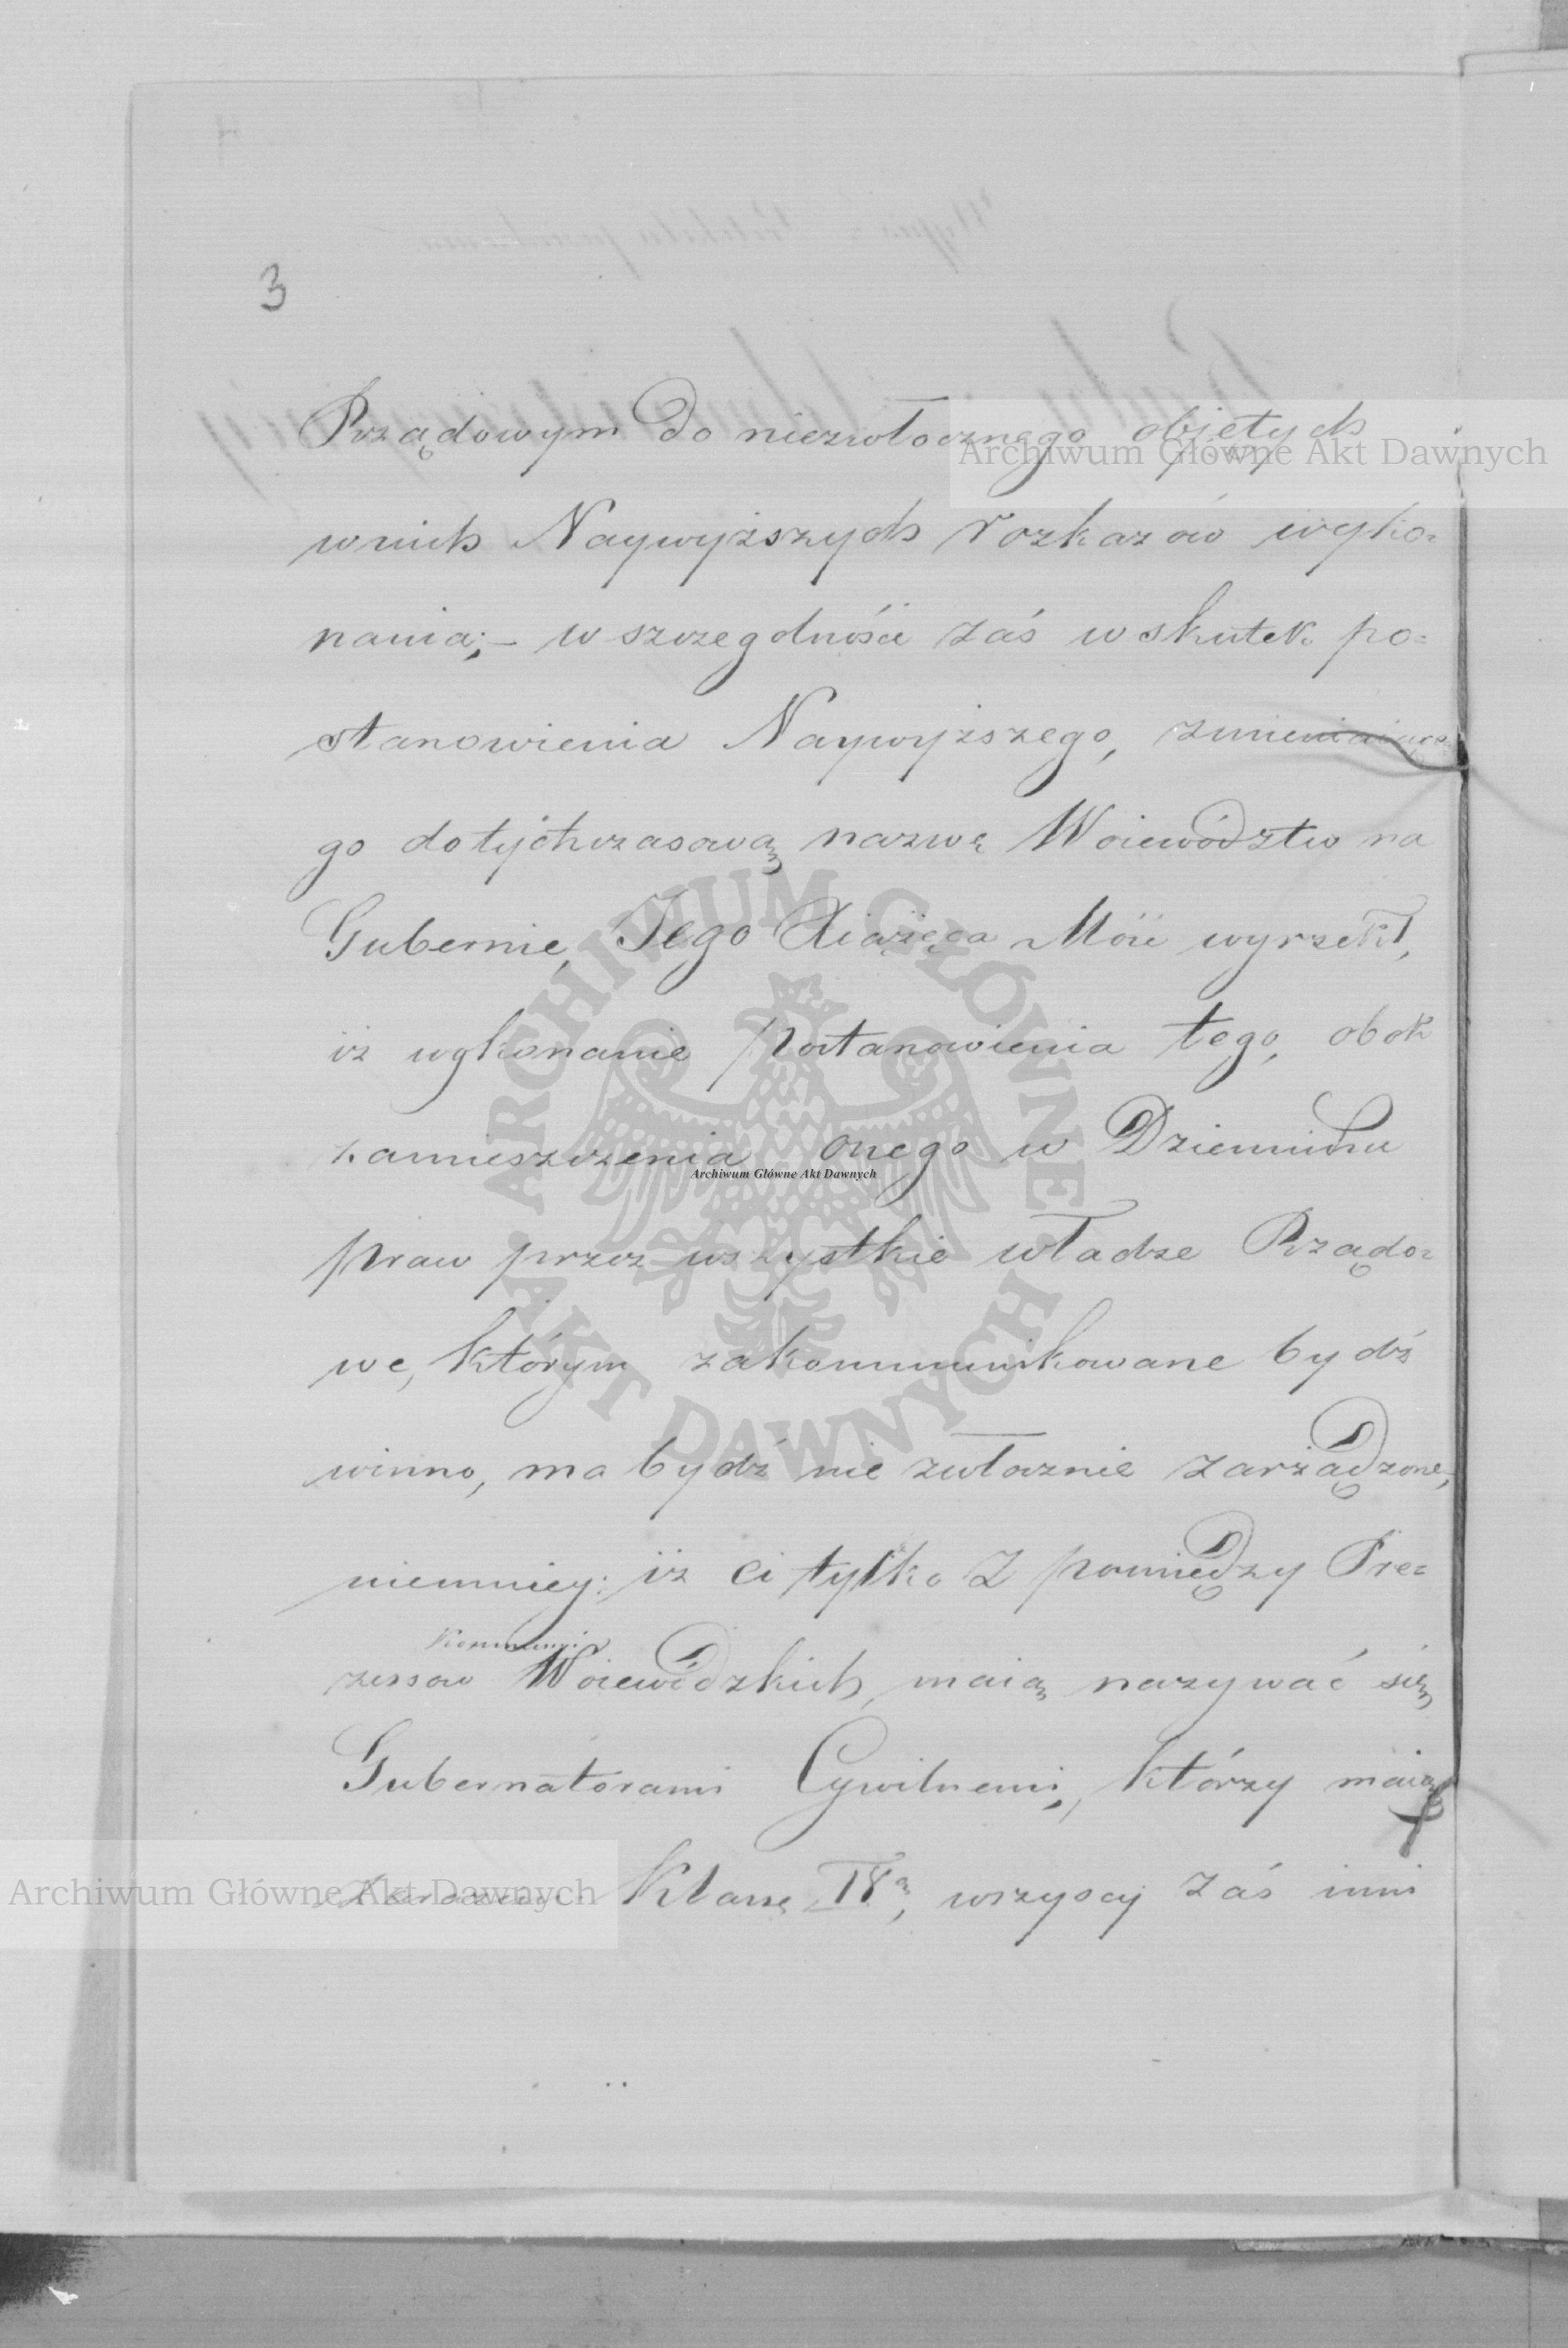 3
Rządowym do niezwłocznego objętych
w nich Naywyższych rozkazów wyko=
nania; – w szczegolności zaś w skutek po=
stanowienia Naywyższego, zmieniaiące=
go dotychczasową nazwę Woiewództw na
Gubernie, Jego Xiążęca Mość wyrzekł,
iż wykonanie postanowienia tego, obok
zamieszczenia onego w Dzienniku
praw przez wszystkie władze Rządo=
we, którym zakommunikowane bydź
winno, ma bydź nie zwłocznie zarządzone,
niemniey: iż ci tylko z pomiędzy Pre=
Kommissyi
zessow Woiewódzkich, maią nazywać się
Gubernatorami Cywilnemi, którzy maią
Klassę IVą, wszyscy zaś inni
Archiwum Główne Akt Dawnych
ARCHIWUM GŁÓWNE AKT DAWNYCH
Archiwum Główne Akt Dawnych
Archiwum Główne Akt Dawnych